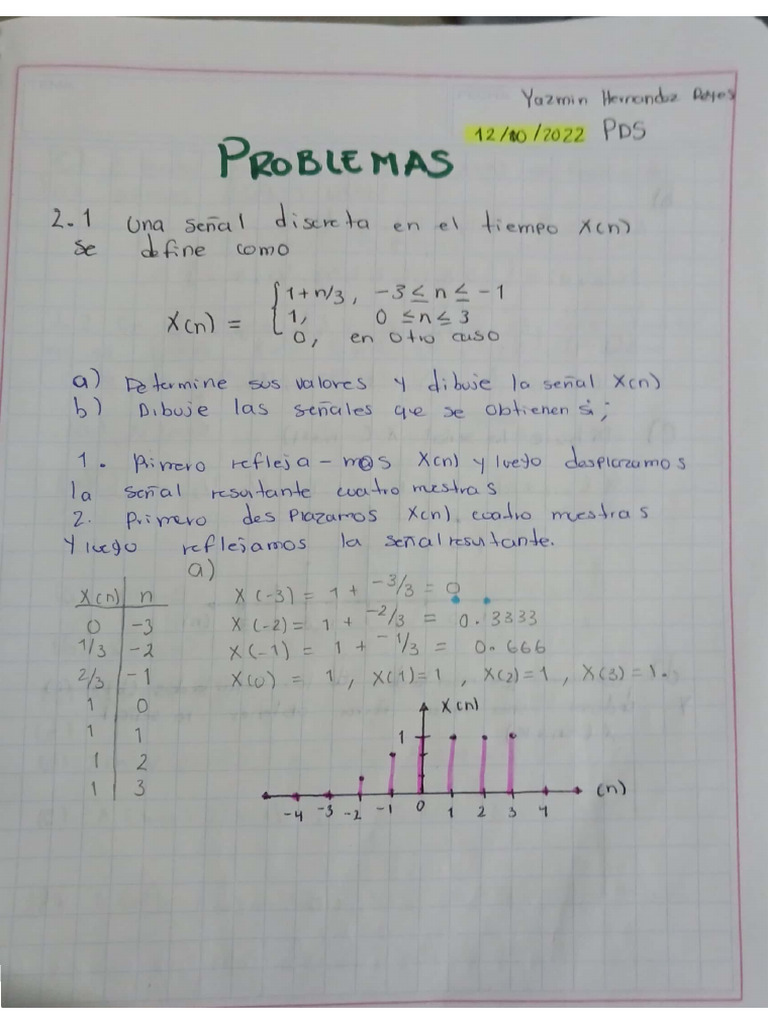 Yazmin Hernandez Reyes
12/10/2022 PDS
PROBLEMAS
2.1 Una señal discreta en el tiempo x(n)
se define como
x(n) = { 1+n/3, -3 ≤ n ≤ -1
1, 0 ≤ n ≤ 3
0, en otro caso
a) Determine sus valores y dibuje la señal x(n)
b) Dibuje las señales que se obtienen si;
1. Primero refleja-mos x(n) y luego desplazamos
la señal resultante cuatro mestras
2. Primero desplazamos x(n) cuatro muestras
y luego reflejamos la señal resultante.
a)
x(n) n
0 -3
1/3 -2
2/3 -1
1 0
1 1
1 2
1 3
x(-3) = 1 + -3/3 = 0
x(-2) = 1 + -2/3 = 0.3333
x(-1) = 1 + -1/3 = 0.666
x(0) = 1, x(1)=1, x(2)=1, x(3)=1.
x(n)
1
(n)
-4 -3 -2 -1 0 1 2 3 4